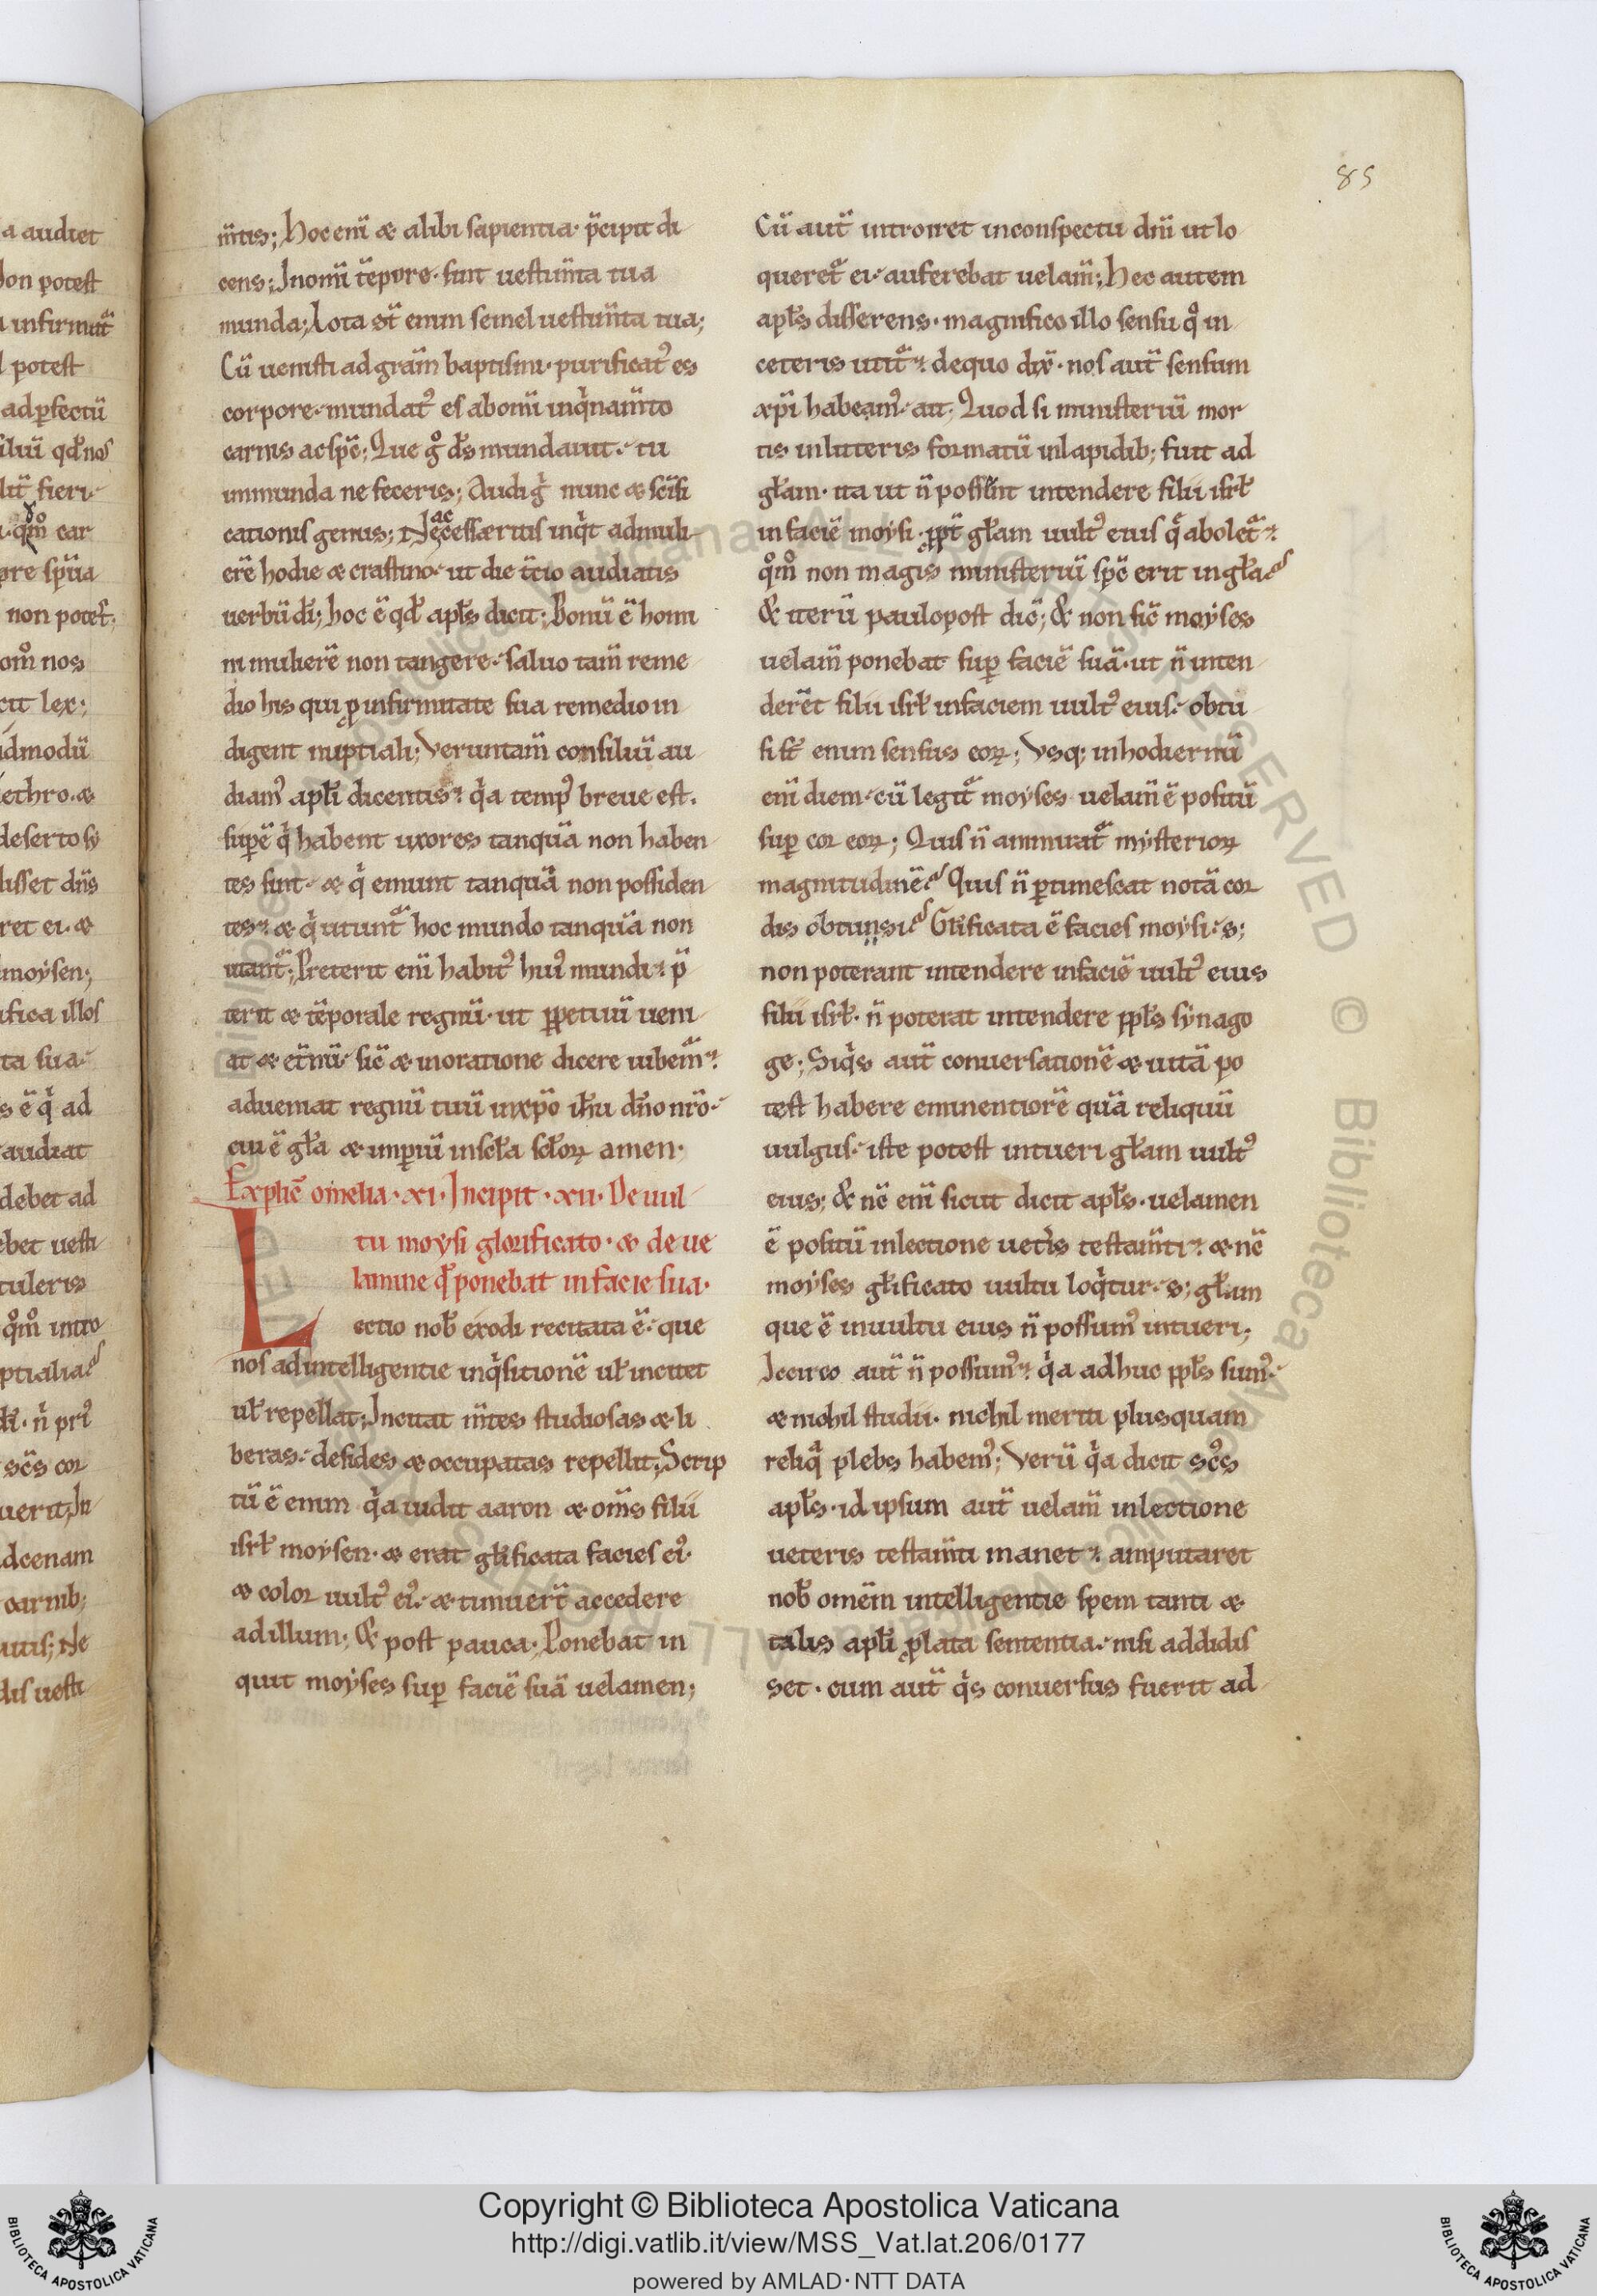 85
m̄tis; Hoc eni̅ & alibi sapientia· p̄cipit di
cens; In omi̅ te̅pore· sint uestim̅ta tua
munda; Lota st̅ enim semel uestim̅ta tua;
Cu̅ uenisti ad gra̅m baptismi· purificatꝰ es
corpore· mundatꝰ es ab omi̅ inqͥnam̅to
carnis ac sp̅c; Que gͦ ds̅ mundauit· tu
immunda ne feceris; Audi gͥ nunc & sc̅ifi
cationis genus; Necessæ
ac
eritis inqͥt ad muli
ere̅ hodie & crastino· ut die t̅cio audiatis
uerbu̅ di̅; hoc e̅ qd̅ apl̅s dicit; Bonu̅ e̅ homi
ni muliere̅ non tangere· saluo tam̅ reme
dio his qui ꝓ infirmitate sua remedio in
digent nuptiali; Veruntam̅ consiliu̅ au
diamꝰ apl̅i dicentis· qͥa tempꝰ breue est.
supe̅ qͥ habent uxores tanqua̅ non haben
tes sint· & qͥ emunt tanqua̅ non possiden
tes· & qͥ utunt̅ hoc mundo tanqua̅ non
utant̅; Preterit eni̅ habitꝰ huiꝰ mundi· p̄
terit & te̅porale regnu̅· ut ꝑpetuu̅ ueni
at & et̅nu̅· sic̅ & in oratione dicere iubem̅·
adueniat regnu̅ tuu̅ in xp̅o ih̅u dn̅o nr̅o·
cui e̅ gl̅a & imꝑiu̅ in scl̅a scl̅oꝝ amen·
Explic̅ omelia· xi· Incipit· xii· De uul
tu moysi glorificato· & de ue
lamine qd̅ ponebat in facie sua·
Lectio nob̅ exodi recitata e̅· que
nos ad intelligentie inqͥsitione̅ ul̅ incitet
ul̅ repellat; Incitat m̅tes studiosas & li
beras· desides & occupatas repellit; Scrip
tu̅ e̅ enim qͥa uidit aaron & om̅s filii
isrl̅ moysen· & erat gl̅ificata facies eiꝰ·
& color uultꝰ eiꝰ· & timuert̅ accedere
ad illum; & post pauca; Ponebat in
quit moyses suꝑ facie̅ sua̅ uelamen;
Cu̅ aut̅ introiret in conspectu dn̅i ut lo
queret̅ ei· auferebat uelam̅; Hec autem
apl̅s disserens· magnifico illo sensu qͦ in
ceteris utit̅· de quo dix̅· nos aut̅ sensum
xp̅i habeamꝰ· ait; Quod si ministeriu̅ mor
tis in litteris formatu̅ in lapidib; fuit ad
gl̅am· ita ut n̅ possint intendere filii isrl̅
in facie̅ moysi· ꝓpt̅ gl̅am uultꝰ eius qͣ abolet̅·
qͦm̅ non magis ministeriu̅ sp̅c erit in gl̅a?
& iteru̅ paulo post dic̅; & non sic̅ moyses
uelam̅ ponebat suꝑ facie̅ sua̅· ut n̅ inten
dere̅t filii isrl̅ in faciem uultꝰ eius· obtu
si st̅ enim sensus eoꝝ; Vsq; in hodiernu̅
eni̅ diem· cu̅ legit̅ moyses uelam̅ e̅ positu̅
suꝑ cor eoꝝ; Quis n̅ ammirat̅ mysterioꝝ
magnitudine̅? Quis n̅ ꝑtimescat nota̅ cor
dis obtunsi? Gl̅ificata e̅ facies moysi· s;
non poterant intendere in facie̅ uultꝰ eius
filii isrl̅· n̅ poterat intendere ppl̅s synago
ge; Siqͥs aut̅ conuersatione̅ & uita̅ po
test habere eminentiore̅ qua̅ reliquu̅
uulgus· iste potest intueri gl̅am uultꝰ
eius; & nc̅ eni̅ sicut dicit apl̅s· uelamen
e̅ positu̅ in lectione uetͥis testam̅ti· & nc̅
moyses gl̅ificato uultu loqͥtur· s; gl̅am
que e̅ in uultu eius n̅ possumꝰ intueri;
Iccirco aut̅ n̅ possumꝰ· qͥa adhuc ppl̅s sumꝰ·
& nichil studii· nichil meriti plusquam
reliqͣ plebs habemꝰ; Veru̅ qͥa dicit sc̅s
apl̅s· id ipsum aut̅ uelam̅ in lectione
ueteris testam̅ti manet· amputaret
nob̅ ome̅m intelligentie spem tanti &
talis apl̅i ꝓlata sententia· nisi addidis
set· cum aut̅ qͥs conuersus fuerit ad
Copyright © Biblioteca Apostolica Vaticana
http://digi.vatlib.it/view/MSS_Vat.lat.206/0177
powered by AMLAD·NTT DATA
BIBLIOTECA APOSTOLICA VATICANA
BIBLIOTECA APOSTOLICA VATICANA